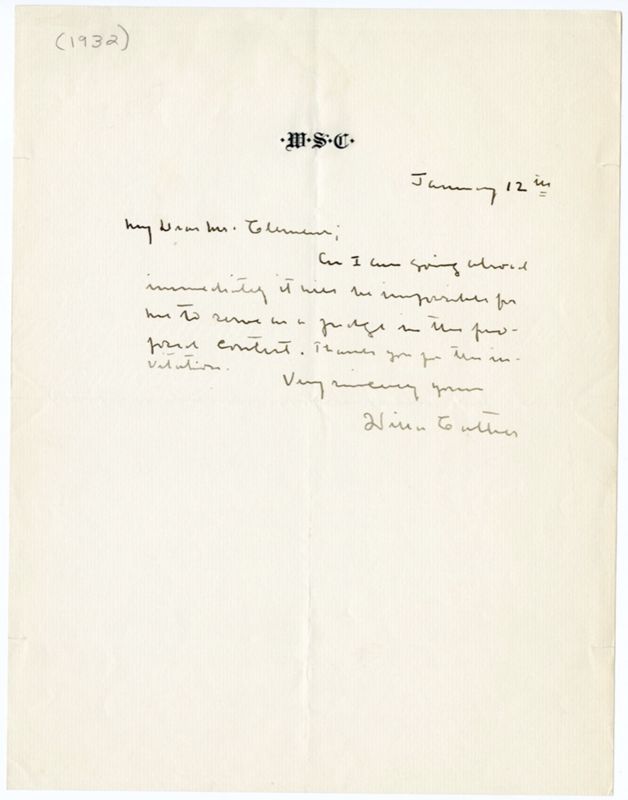 (1932)
·W·S·C·
January 12th
My Dear Mr. Clemens;
As I am going abroad
immediately it will be impossible for
me to serve as a judge in the pro-
posed contest. Thank you for the in-
vitation.
Very sincerely yours
Willa Cather